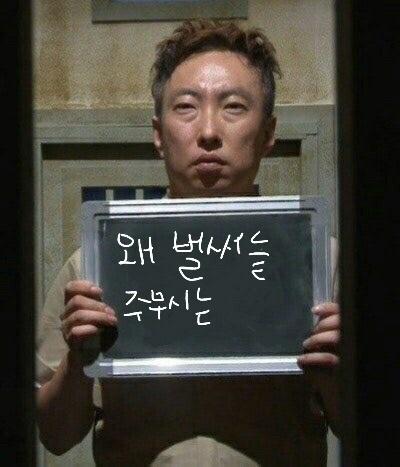 왜 벌써들
주무시는